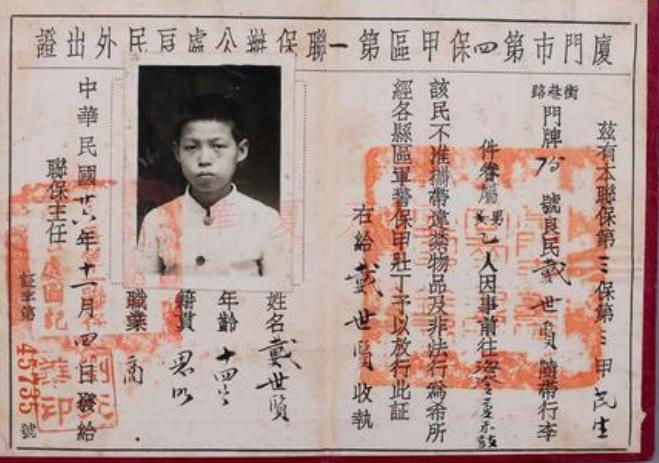 廈門市第四保甲區第一聯保辦公處居民外出證
茲有本聯保第三保第三甲民生
街巷路門牌號良民戴世賢攜帶行李
件眷屬男女乙人因事前往
該民不准攜帶違禁物品及非法行為希所
經各縣區軍警保甲壯丁予以放行此証
右給戴世賢收執
姓名戴世賢
年齡十四
籍貫思明
職業商
中華民國廿六年十一月四日發給
聯保主任
証字第45735號